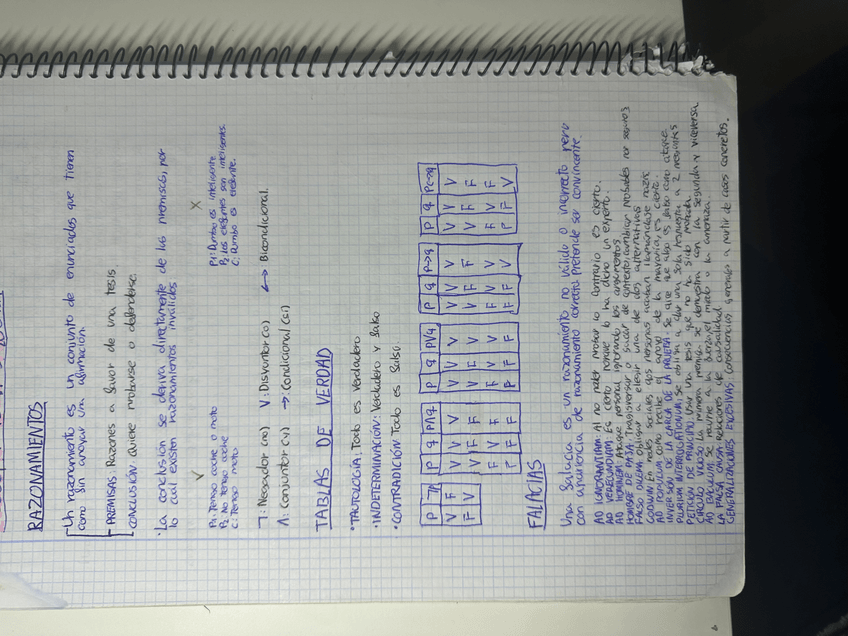 RAZONAMIENTOS
Un razonamiento es un conjunto de enunciados que tienen
como fin apoyar una afirmación.
PREMISAS: Razones a favor de una tesis.
CONCLUSIÓN quiere probarse o defenderse.
· La conclusión se deriva directamente de las premisas, por
lo cual existen razonamientos inválidos
✓
P1: Tengo coche o moto
P2: No tengo coche
C: Tengo moto
X
P1: Dumbo es inteligente
P2: Los elegantes son inteligentes.
C: Dumbo es elegante.
7: Negador (no) V: Disyuntor (o) ↔ Bicondicional.
Λ: Conjuntor (y) → Condicional (si)
TABLAS DE VERDAD
· TAUTOLOGÍA: Todo es verdadero
· INDETERMINACIÓN: Verdadero y falso
· CONTRADICIÓN Todo es falso.
P 7P
V F
F V
P q PΛq
V V V
V F F
F V F
F F F
P q PVq
V V V
V F V
F V V
F F F
P q P→q
V V V
V F F
F V V
F F V
P q P↔q
V V V
V F F
F V F
F F V
FALACIAS
Una falacia es un razonamiento no válido o incorrecto pero
con apariencia de razonamiento correcto. Pretende ser convincente.
AD IGNORANTIAM Al no poder probar lo contrario es cierto.
AD VERECUNDIAM Es cierto porque lo ha dicho un experto.
AD HOMINEM Ataque personal ignorando los argumentos.
HOMBRE DE PAJA: tergiversar o sacar de contexto/cambiar
FALSO DILEMA obligar a elegir una de dos alternativas
GODWIN En redes sociales dos personas acaban llamándose nazis
AD POPULUM como recibe el apoyo de la mayoría, es cierto.
INVERSIÓN DE LA CARGA DE LA PRUEBA Se dice que algo es falso como ataque.
PLURIUM INTERROGATIONUM: Se obliga a dar una sola respuesta a 2
PETICIÓN DE PRINCIPIO Usar una tesis que no ha sido probada.
CÍRCULO VICIOSO La primera premisa se demuestra con la segunda y viceversa
AD BACULUM Se recurre a la fuerza, el miedo o la amenaza.
LA FALSA CAUSA Relaciones de causalidad
GENERALIZACIONES EXCESIVAS: Consecuencias generales a partir de casos concretos.